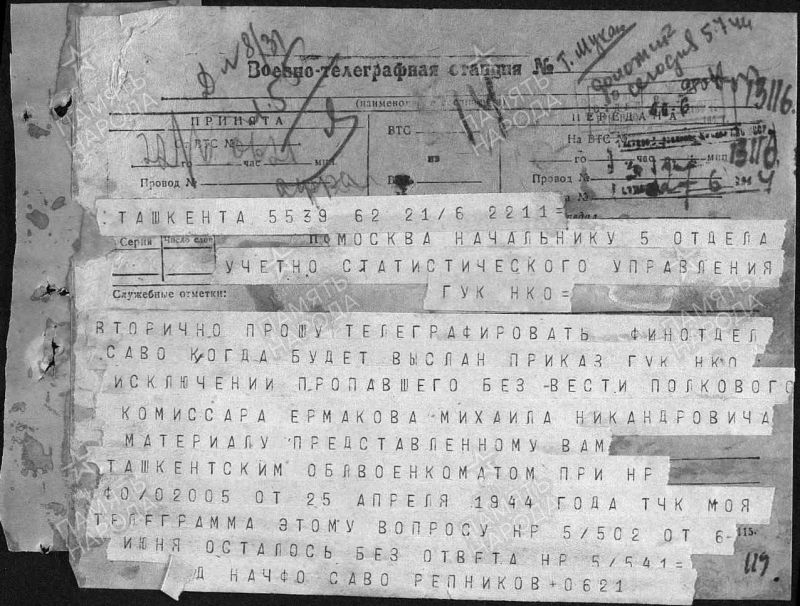 Д № 8/31
Т. Мукан
сегодня
Военно-телеграфная станция №
1311б.
ПРИНЯТА
От ВТС №
го час мин
Провод №
ВТС
из
ПЕРЕДАНА
На ВТС №
го час мин
Провод №
ТАШКЕНТА 5539 62 21/6 2211=
Серия Число слов
МОСКВА НАЧАЛЬНИКУ 5 ОТДЕЛА
УЧЕТНО СТАТИСТИЧЕСКОГО УПРАВЛЕНИЯ
ГУК НКО=
Служебные отметки:
ВТОРИЧНО ПРОШУ ТЕЛЕГРАФИРОВАТЬ ФИНОТДЕЛ
САВО КОГДА БУДЕТ ВЫСЛАН ПРИКАЗ ГУК НКО
ИСКЛЮЧЕНИИ ПРОПАВШЕГО БЕЗ ВЕСТИ ПОЛКОВОГО
КОМИССАРА ЕРМАКОВА МИХАИЛА НИКАНДРОВИЧА
МАТЕРИАЛУ ПРЕДСТАВЛЕННОМУ ВАМ
ТАШКЕНТСКИМ ОБЛВОЕНКОМАТОМ ПРИ НР
40/02005 ОТ 25 АПРЕЛЯ 1944 ГОДА ТЧК МОЯ
ТЕЛЕГРАММА ЭТОМУ ВОПРОСУ НР 5/502 ОТ 6-
115.
ИЮНЯ ОСТАЛОСЬ БЕЗ ОТВЕТА НР 5/541=
119.
Д НАЧФО САВО РЕПНИКОВ+0621
ПАМЯТЬ НАРОДА